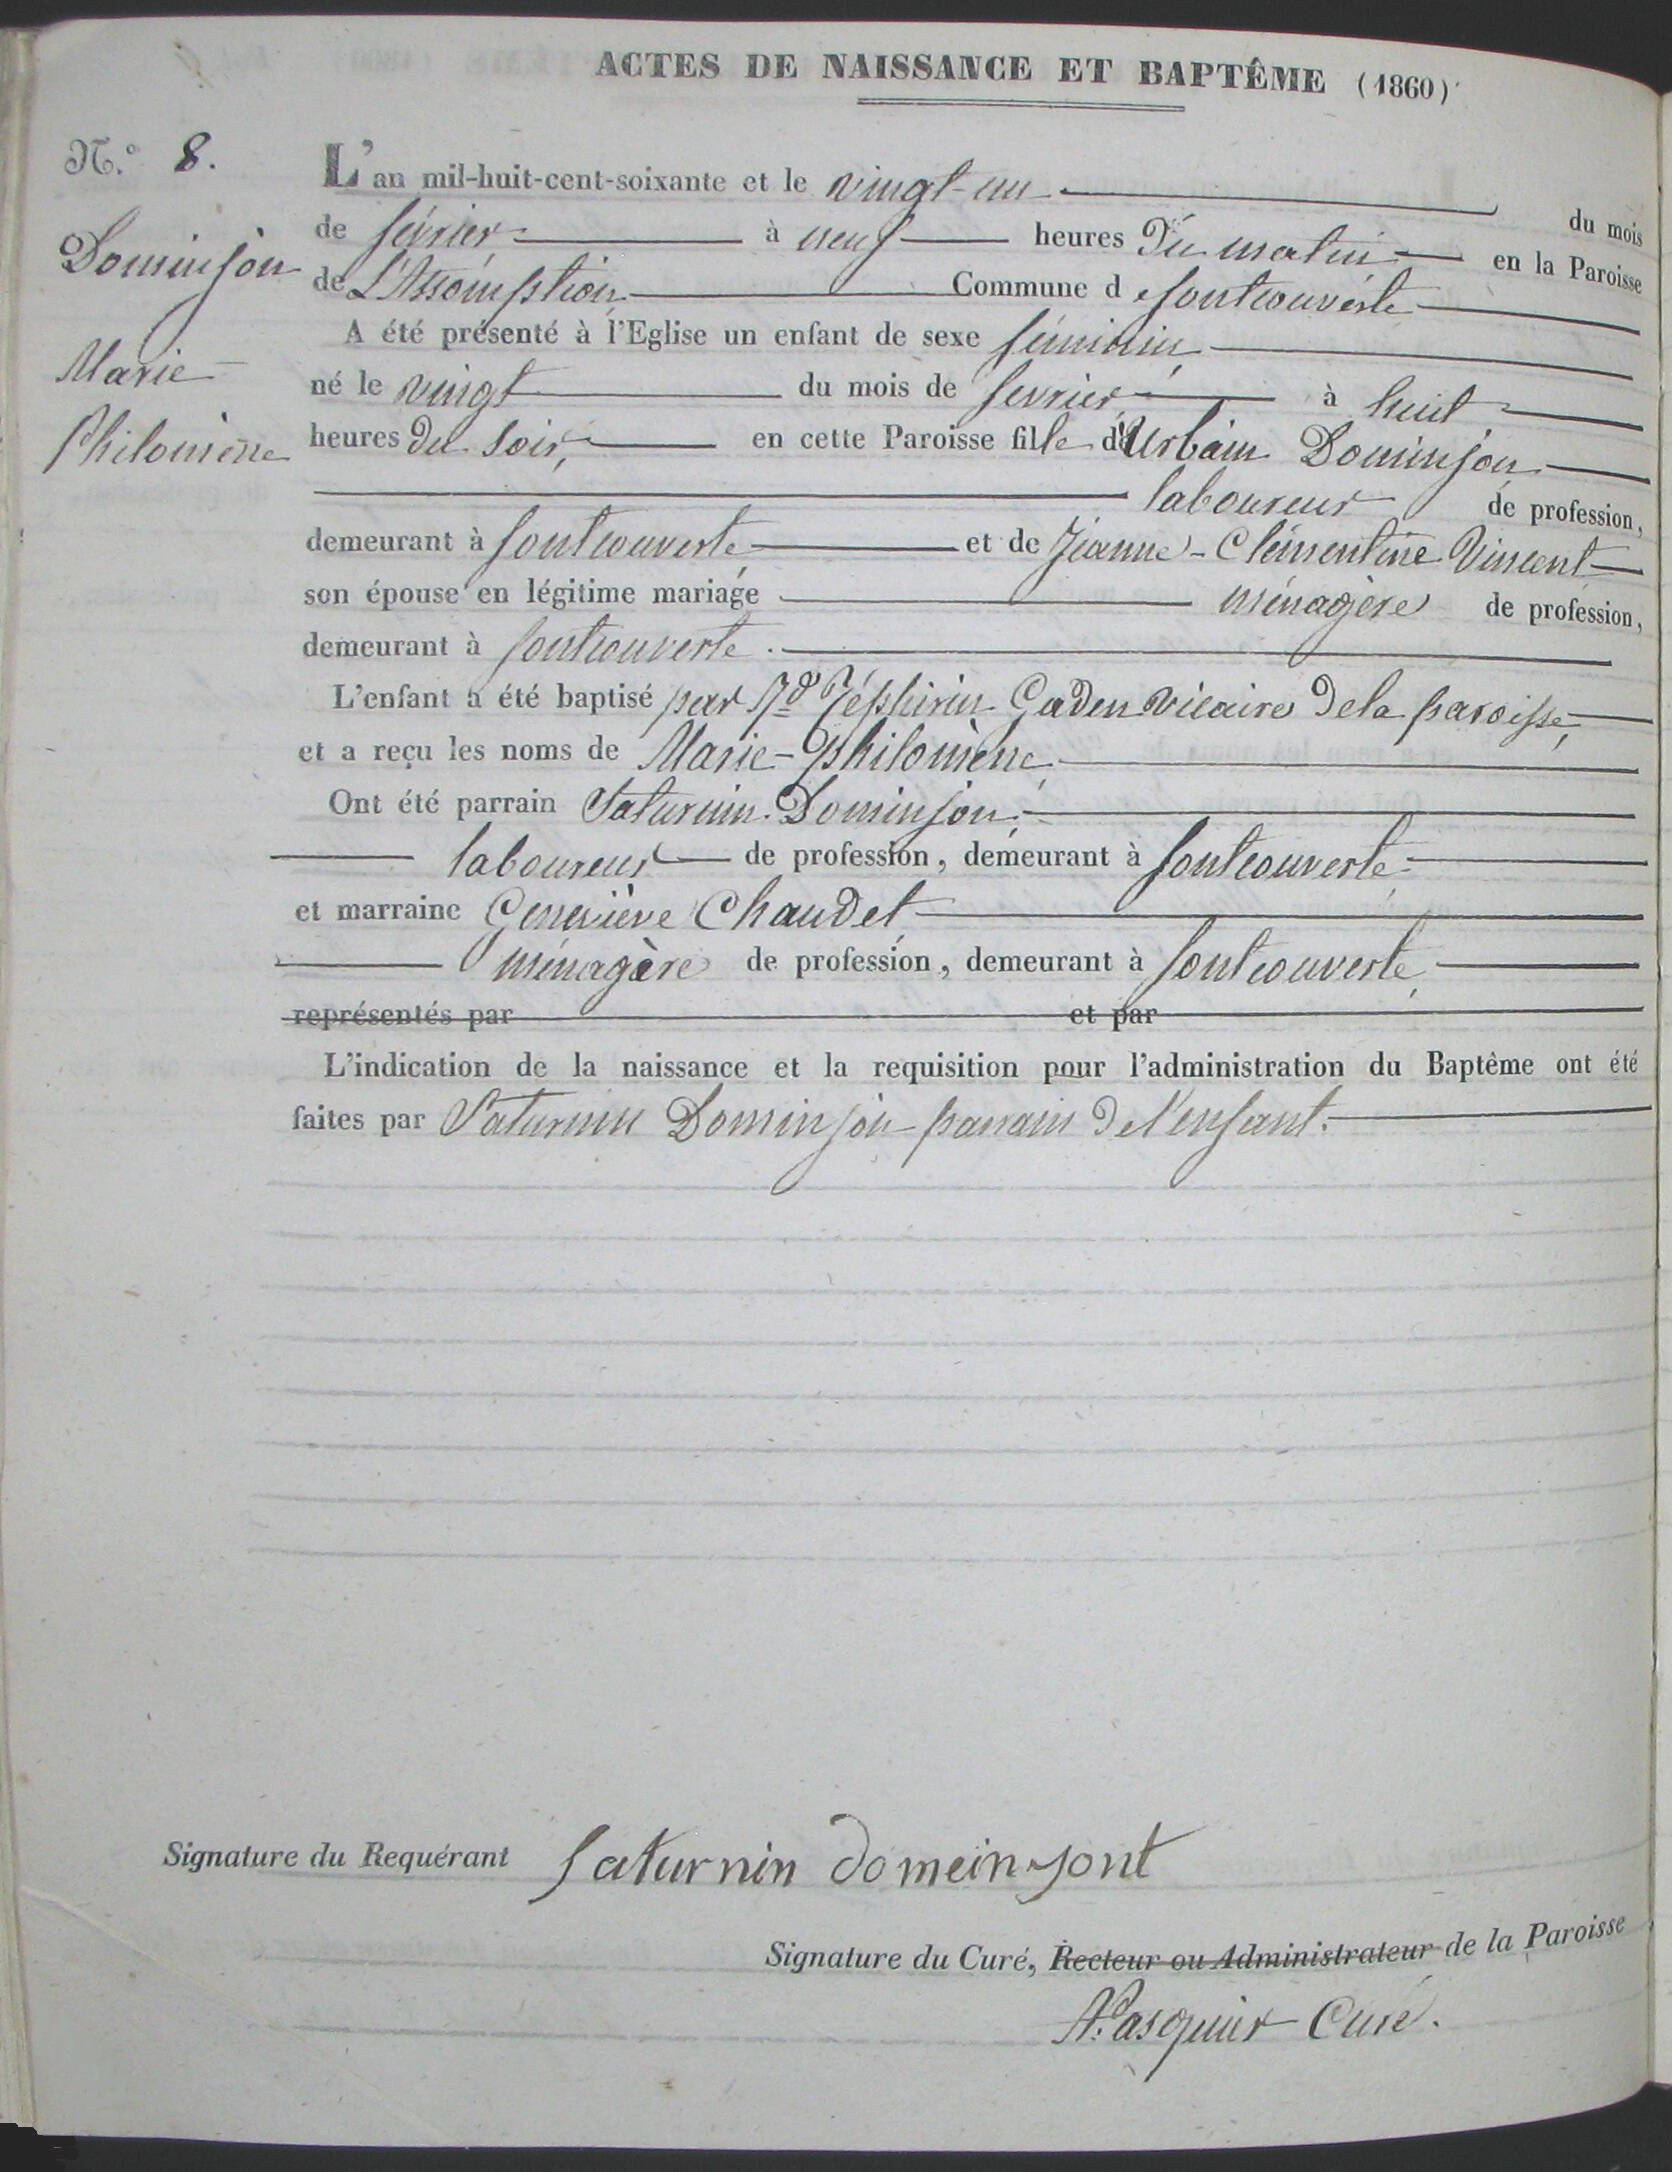 ACTES DE NAISSANCE ET BAPTÊME (1860)
N.º 8.
Dominjon
Marie
Philomène
L'an mil-huit-cent-soixante et le vingt-un du mois
de février à neuf heures du matin en la Paroisse
de L'Assomption Commune d e fontcouverte
A été présenté à l'Eglise un enfant de sexe féminin,
né le vingt du mois de fevrier à huit
heures du soir, en cette Paroisse fille d'Urbain Dominjon
laboureur de profession,
demeurant à fontcouverte et de Jeanne-Clémentine Vincent
son épouse en légitime mariage ménagère de profession,
demeurant à fontcouverte.
L'enfant a été baptisé par Rd Zéphirin Gaden vicaire de la paroisse,
et a reçu les noms de Marie-philomène
Ont été parrain Saturnin Dominjon,
laboureur de profession, demeurant à fontcouverte
et marraine Geneviève Chaudet
ménagère de profession, demeurant à fontcouverte
représentés par et par
L'indication de la naissance et la requisition pour l'administration du Baptême ont été
faites par Saturnin Dominjon parrain de l'enfant.
Signature du Requérant Saturnin domeinjont
Signature du Curé, Recteur ou Administrateur de la Paroisse
Pasquier Curé.